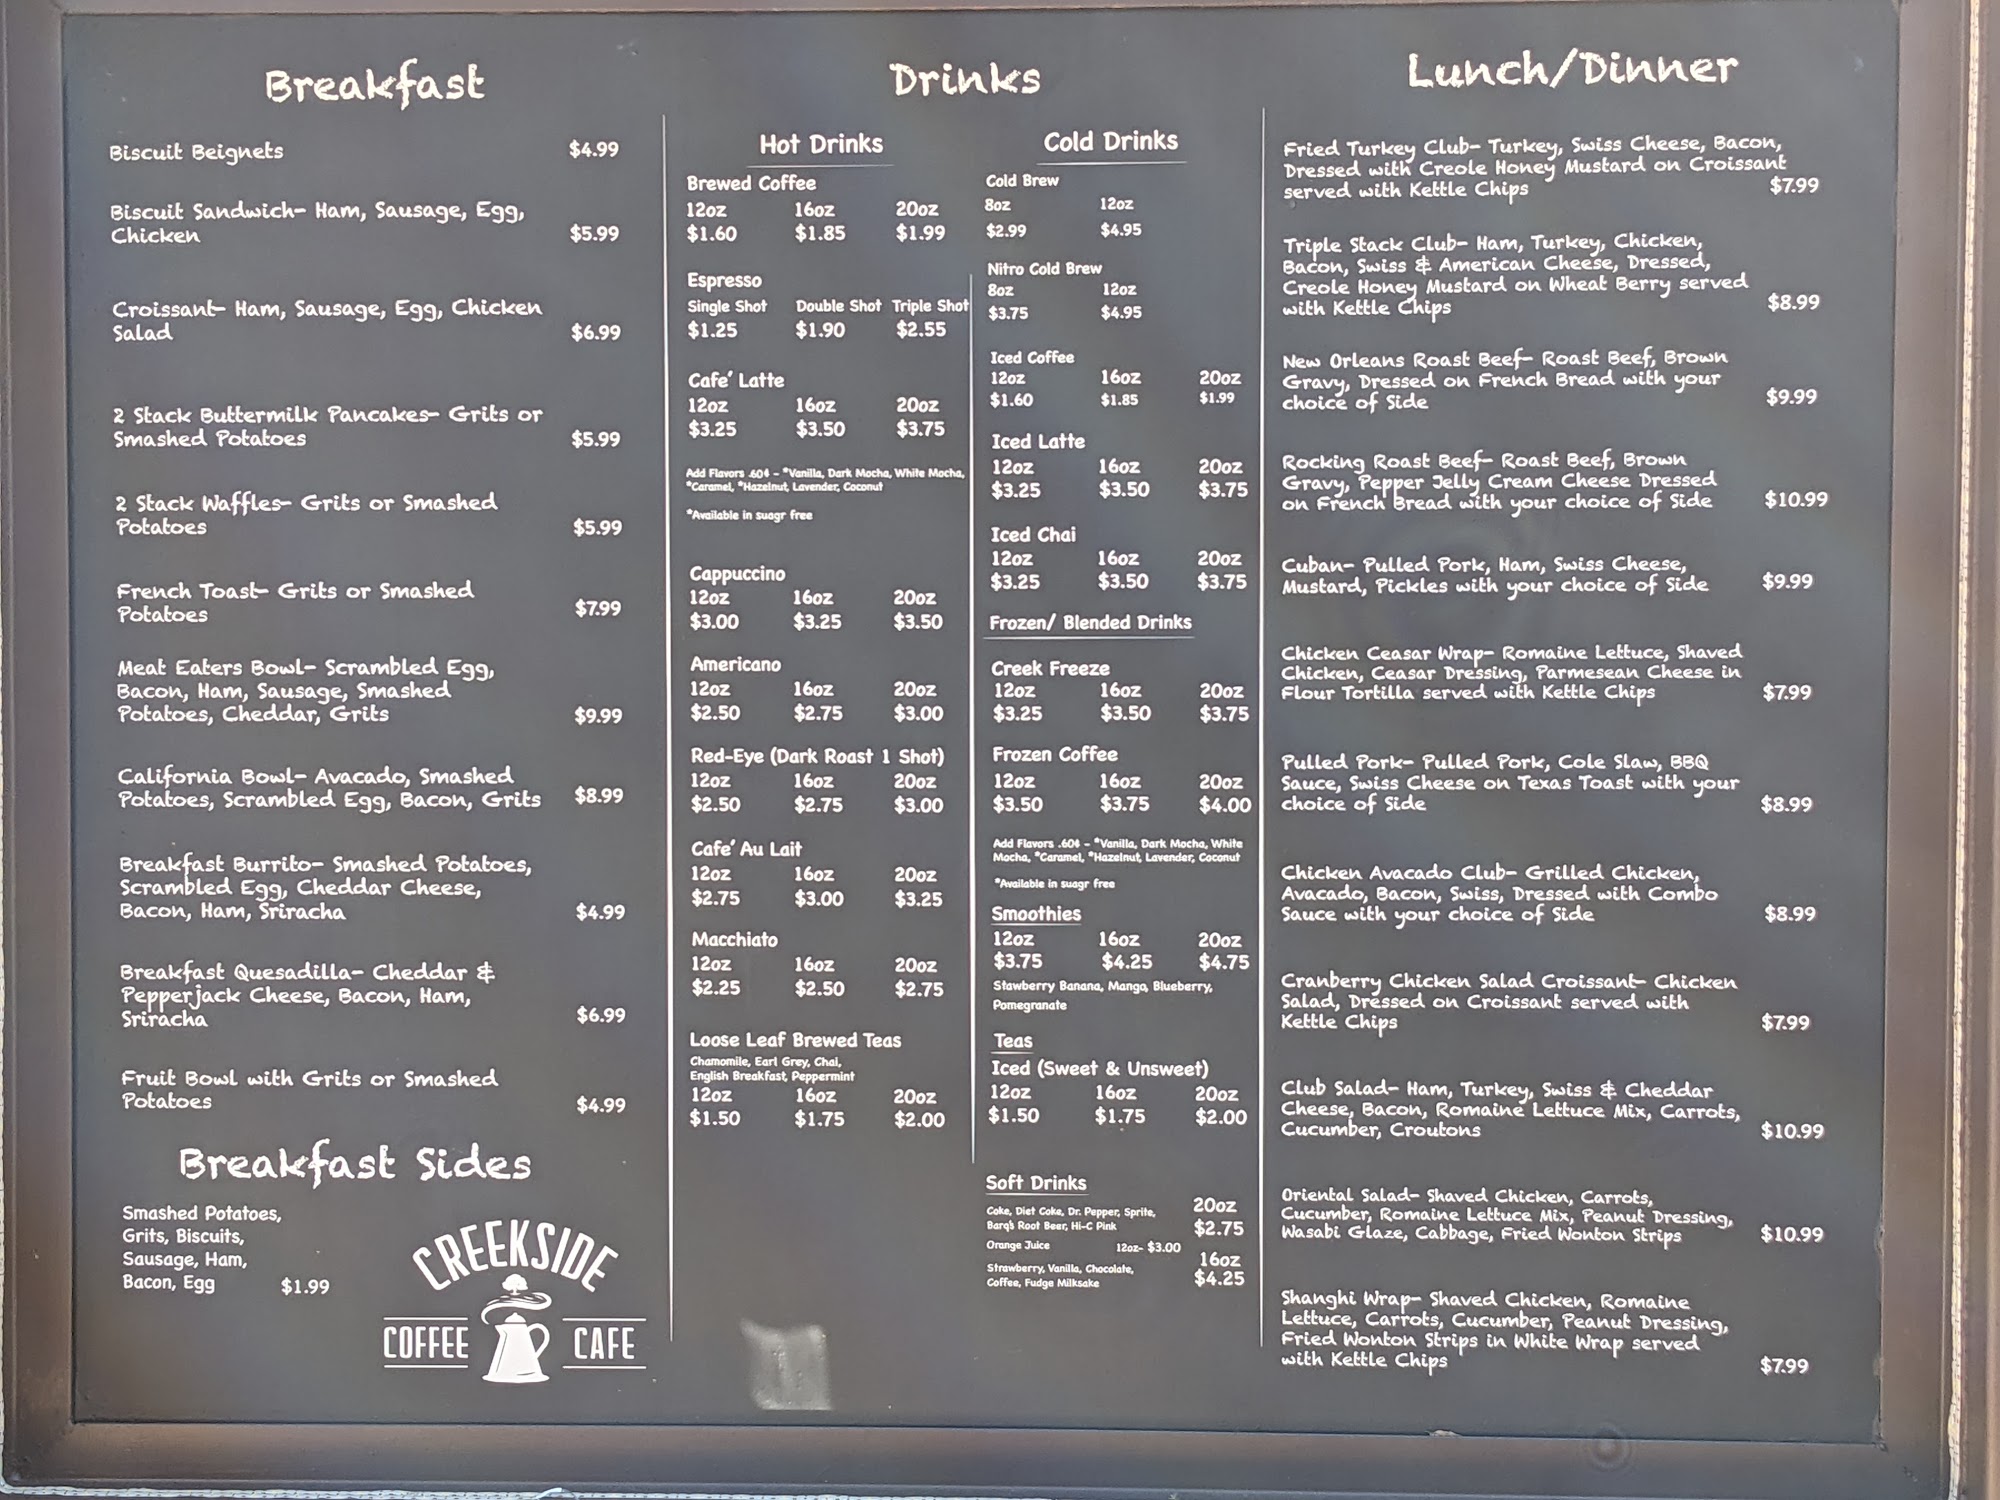 Breakfast
Biscuit Beignets $4.99
Biscuit Sandwich- Ham, Sausage, Egg,
Chicken $5.99
Croissant- Ham, Sausage, Egg, Chicken
Salad $6.99
2 Stack Buttermilk Pancakes- Grits or
Smashed Potatoes $5.99
2 Stack Waffles- Grits or Smashed
Potatoes $5.99
French Toast- Grits or Smashed
Potatoes $7.99
Meat Eaters Bowl- Scrambled Egg,
Bacon, Ham, Sausage, Smashed
Potatoes, Cheddar, Grits $9.99
California Bowl- Avacado, Smashed
Potatoes, Scrambled Egg, Bacon, Grits $8.99
Breakfast Burrito- Smashed Potatoes,
Scrambled Egg, Cheddar Cheese,
Bacon, Ham, Sriracha $4.99
Breakfast Quesadilla- Cheddar &
Pepperjack Cheese, Bacon, Ham,
Sriracha $6.99
Fruit Bowl with Grits or Smashed
Potatoes $4.99
Breakfast Sides
Smashed Potatoes,
Grits, Biscuits,
Sausage, Ham,
Bacon, Egg $1.99
CREEKSIDE
COFFEE CAFE
Drinks
Hot Drinks
Brewed Coffee
12oz 16oz 20oz
$1.60 $1.85 $1.99
Espresso
Single Shot Double Shot Triple Shot
$1.25 $1.90 $2.55
Cafe' Latte
12oz 16oz 20oz
$3.25 $3.50 $3.75
Add Flavors .60¢ - *Vanilla, Dark Mocha, White Mocha,
*Caramel, *Hazelnut, Lavender, Coconut
*Available in suagr free
Cappuccino
12oz 16oz 20oz
$3.00 $3.25 $3.50
Americano
12oz 16oz 20oz
$2.50 $2.75 $3.00
Red-Eye (Dark Roast 1 Shot)
12oz 16oz 20oz
$2.50 $2.75 $3.00
Cafe' Au Lait
12oz 16oz 20oz
$2.75 $3.00 $3.25
Macchiato
12oz 16oz 20oz
$2.25 $2.50 $2.75
Loose Leaf Brewed Teas
Chamomile, Earl Grey, Chai,
English Breakfast, Peppermint
12oz 16oz 20oz
$1.50 $1.75 $2.00
Cold Drinks
Cold Brew
8oz 12oz
$2.99 $4.95
Nitro Cold Brew
8oz 12oz
$3.75 $4.95
Iced Coffee
12oz 16oz 20oz
$1.60 $1.85 $1.99
Iced Latte
12oz 16oz 20oz
$3.25 $3.50 $3.75
Iced Chai
12oz 16oz 20oz
$3.25 $3.50 $3.75
Frozen/ Blended Drinks
Creek Freeze
12oz 16oz 20oz
$3.25 $3.50 $3.75
Frozen Coffee
12oz 16oz 20oz
$3.50 $3.75 $4.00
Add Flavors .60¢ - *Vanilla, Dark Mocha, White
Mocha, *Caramel, *Hazelnut, Lavender, Coconut
*Available in suagr free
Smoothies
12oz 16oz 20oz
$3.75 $4.25 $4.75
Stawberry Banana, Mango, Blueberry,
Pomegranate
Teas
Iced (Sweet & Unsweet)
12oz 16oz 20oz
$1.50 $1.75 $2.00
Soft Drinks
Coke, Diet Coke, Dr. Pepper, Sprite, 20oz
Barq's Root Beer, Hi-C Pink $2.75
Orange Juice 12oz- $3.00
Strawberry, Vanilla, Chocolate, 16oz
Coffee, Fudge Milksake $4.25
Lunch/Dinner
Fried Turkey Club- Turkey, Swiss Cheese, Bacon,
Dressed with Creole Honey Mustard on Croissant
served with Kettle Chips $7.99
Triple Stack Club- Ham, Turkey, Chicken,
Bacon, Swiss & American Cheese, Dressed,
Creole Honey Mustard on Wheat Berry served
with Kettle Chips $8.99
New Orleans Roast Beef- Roast Beef, Brown
Gravy, Dressed on French Bread with your
choice of Side $9.99
Rocking Roast Beef- Roast Beef, Brown
Gravy, Pepper Jelly Cream Cheese Dressed
on French Bread with your choice of Side $10.99
Cuban- Pulled Pork, Ham, Swiss Cheese,
Mustard, Pickles with your choice of Side $9.99
Chicken Ceasar Wrap- Romaine Lettuce, Shaved
Chicken, Ceasar Dressing, Parmesean Cheese in
Flour Tortilla served with Kettle Chips $7.99
Pulled Pork- Pulled Pork, Cole Slaw, BBQ
Sauce, Swiss Cheese on Texas Toast with your
choice of Side $8.99
Chicken Avacado Club- Grilled Chicken,
Avacado, Bacon, Swiss, Dressed with Combo
Sauce with your choice of Side $8.99
Cranberry Chicken Salad Croissant- Chicken
Salad, Dressed on Croissant served with
Kettle Chips $7.99
Club Salad- Ham, Turkey, Swiss & Cheddar
Cheese, Bacon, Romaine Lettuce Mix, Carrots,
Cucumber, Croutons $10.99
Oriental Salad- Shaved Chicken, Carrots,
Cucumber, Romaine Lettuce Mix, Peanut Dressing,
Wasabi Glaze, Cabbage, Fried Wonton Strips $10.99
Shanghi Wrap- Shaved Chicken, Romaine
Lettuce, Carrots, Cucumber, Peanut Dressing,
Fried Wonton Strips in White Wrap served
with Kettle Chips $7.99